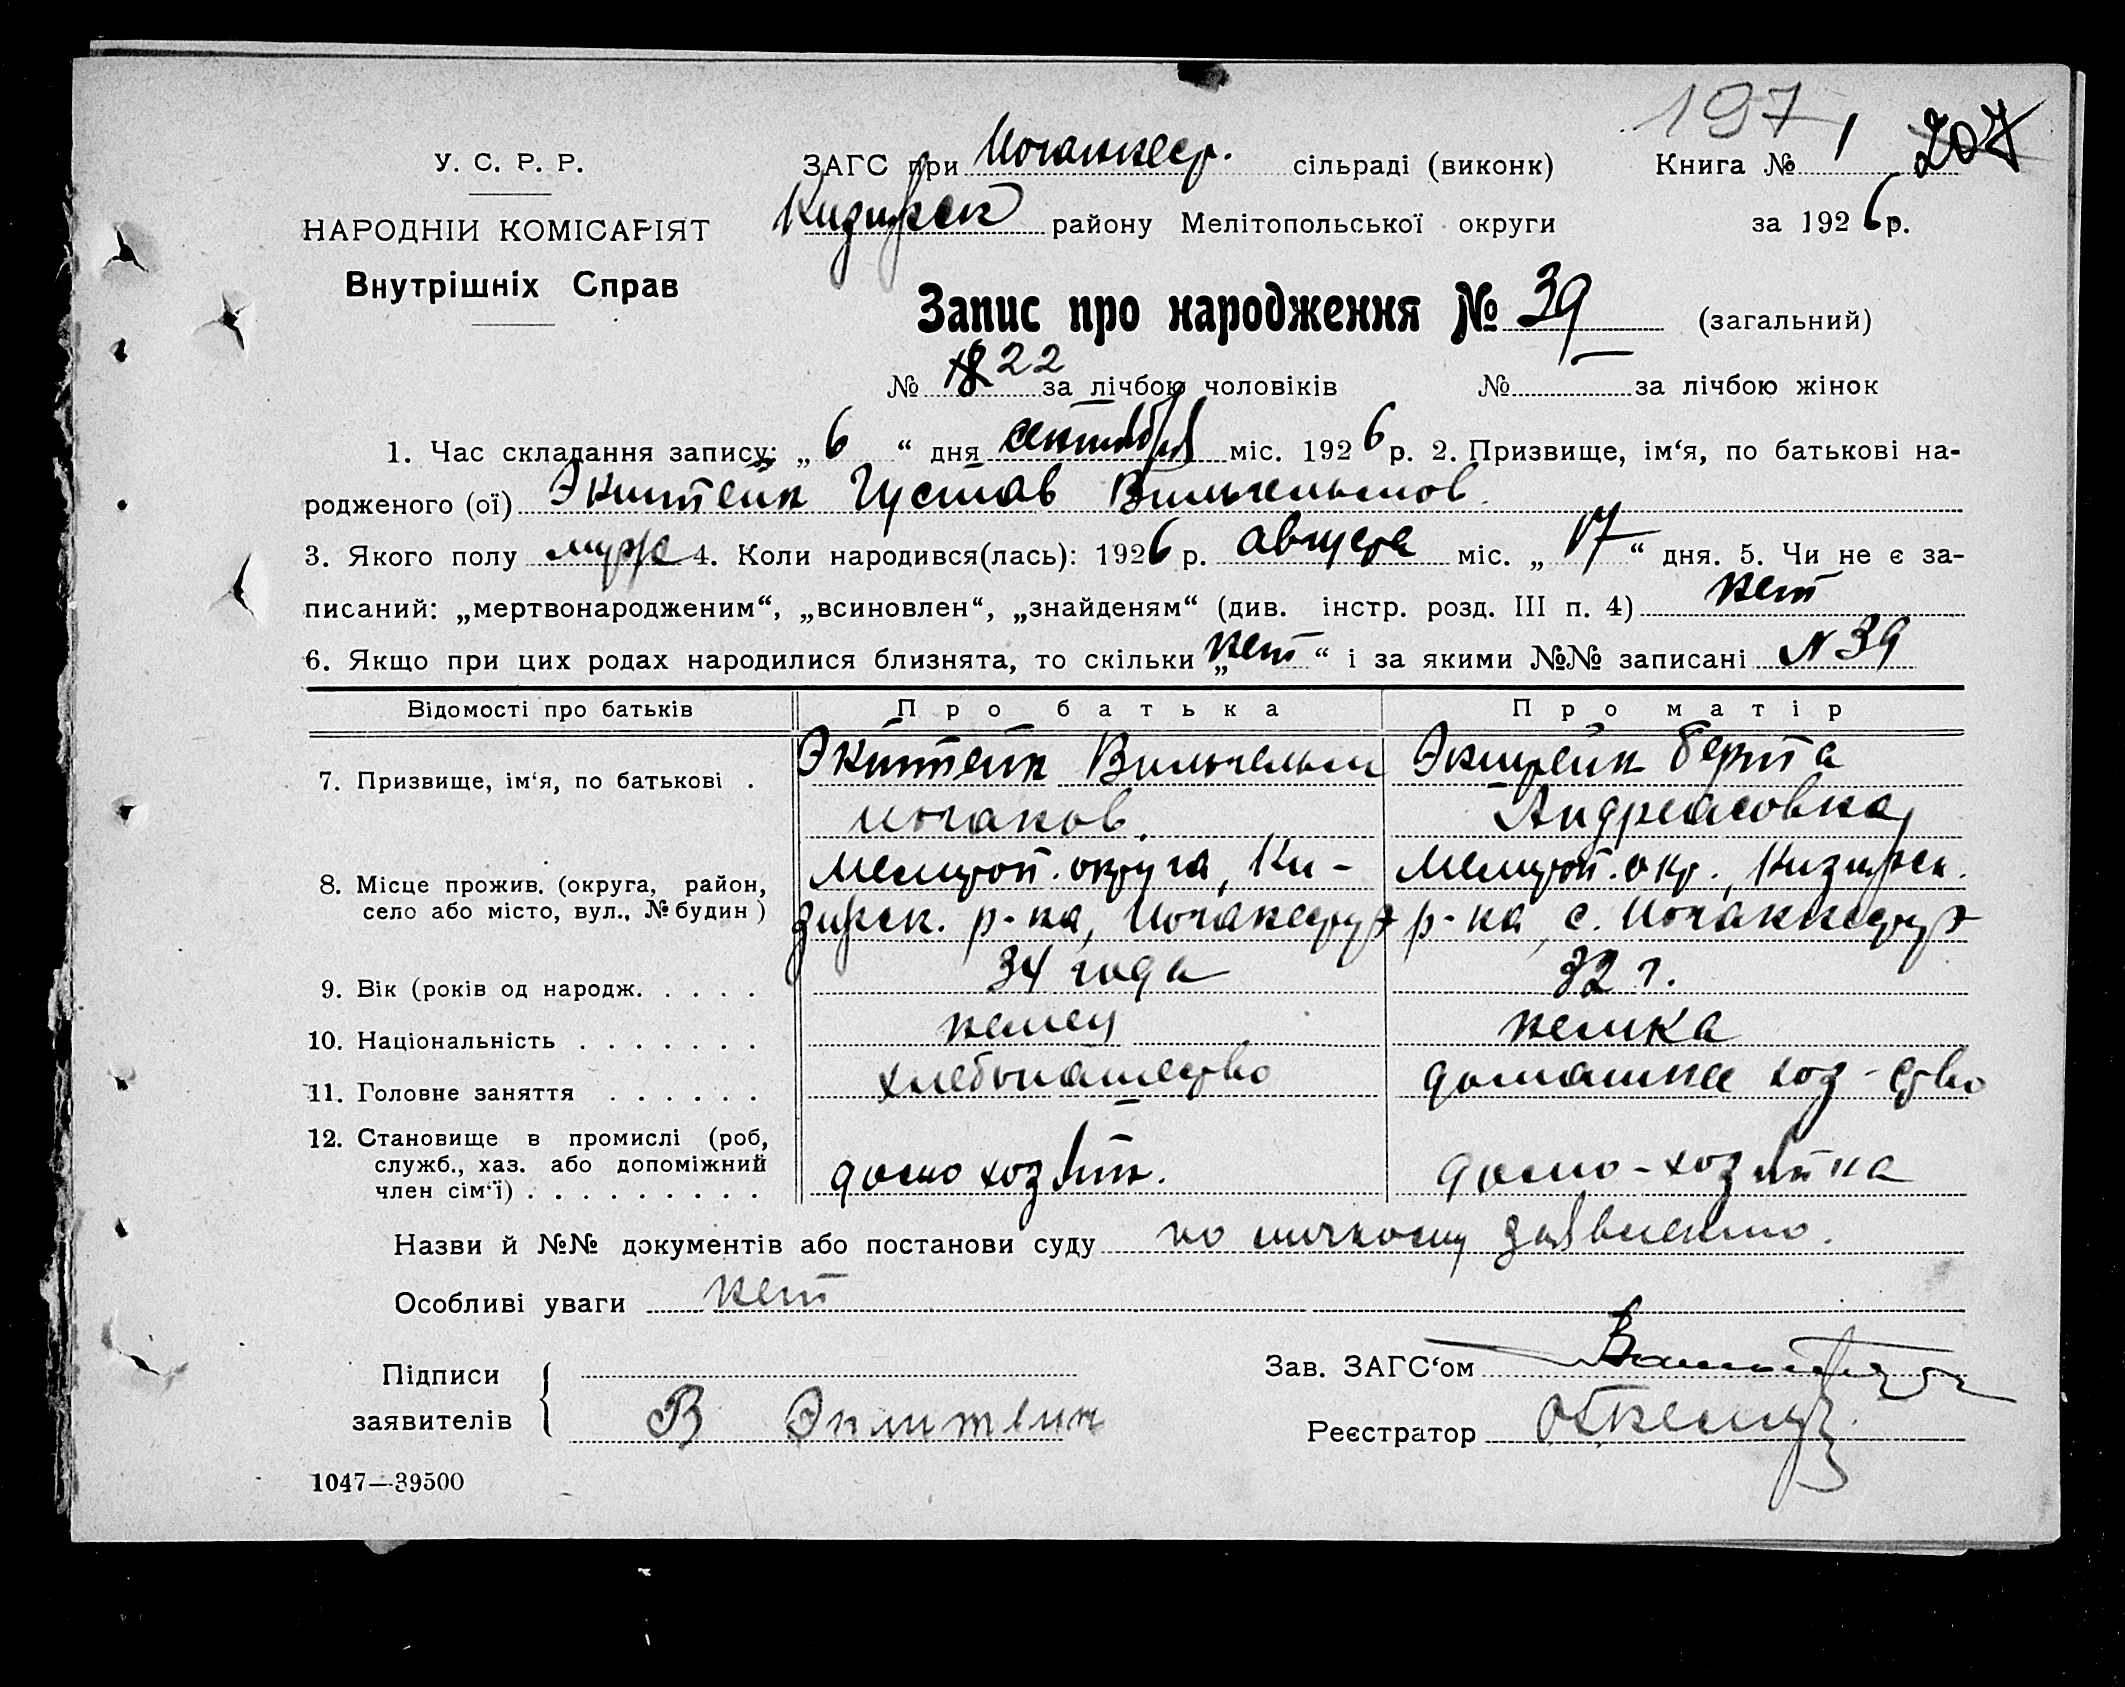 197 1 207
У. С. Р. Р. ЗАГС при Иоганнеср. сільраді (виконк) Книга № 1
НАРОДНІИ КОМІСАРІЯТ Кизиярск району Мелітопольської округи за 1926 р.
Внутрішніх Справ
Запис про народження № 39 (загальний)
№ 22 за лічбою чоловіків № — за лічбою жінок
1. Час складання запису: „ 6 “ дня сентября міс. 1926 р. 2. Призвище, ім‘я, по батькові на-
родженого (ої) Экштейн Густав Вильгельмов.
3. Якого полу мужс 4. Коли народився(лась): 1926 р. августа міс. „ 17 “ дня. 5. Чи не є за-
писаний: „мертвонародженим“, „всиновлен“, „знайденям“ (див. інстр. розд. III п. 4) нет
6. Якщо при цих родах народилися близнята, то скільки „ нет “ і за якими №№ записані N 39
Відомості про батьків Про батька Про матір
7. Призвище, ім‘я, по батькові . Экштейн Вильгельм Экштейн Берта
Иоганов. Андреасовна
8. Місце прожив. (округа, район, Мелитоп. округа, Ки- Мелитоп. окр., Кизиярск.
село або місто, вул., № будин ) зиярск. р-на, Иоганесруэ р-на, с. Иоганнесруэ
9. Вік (років од народж. . . . . 34 года 32 г.
10. Національність . . . . . . . немец немка
11. Головне заняття . . . . . . хлебопашество домашнее хоз-ство
12. Становище в промислі (роб,
служб., хаз. або допоміжний домохозяин. домо-хозяйка
член сім‘ї) . . . . . . . . .
Назви й №№ документів або постанови суду по личному заявлению.
Особливі уваги нет
Підписи Зав. ЗАГС‘ом
заявителів В Экштейн
Реєстратор
1047—39500